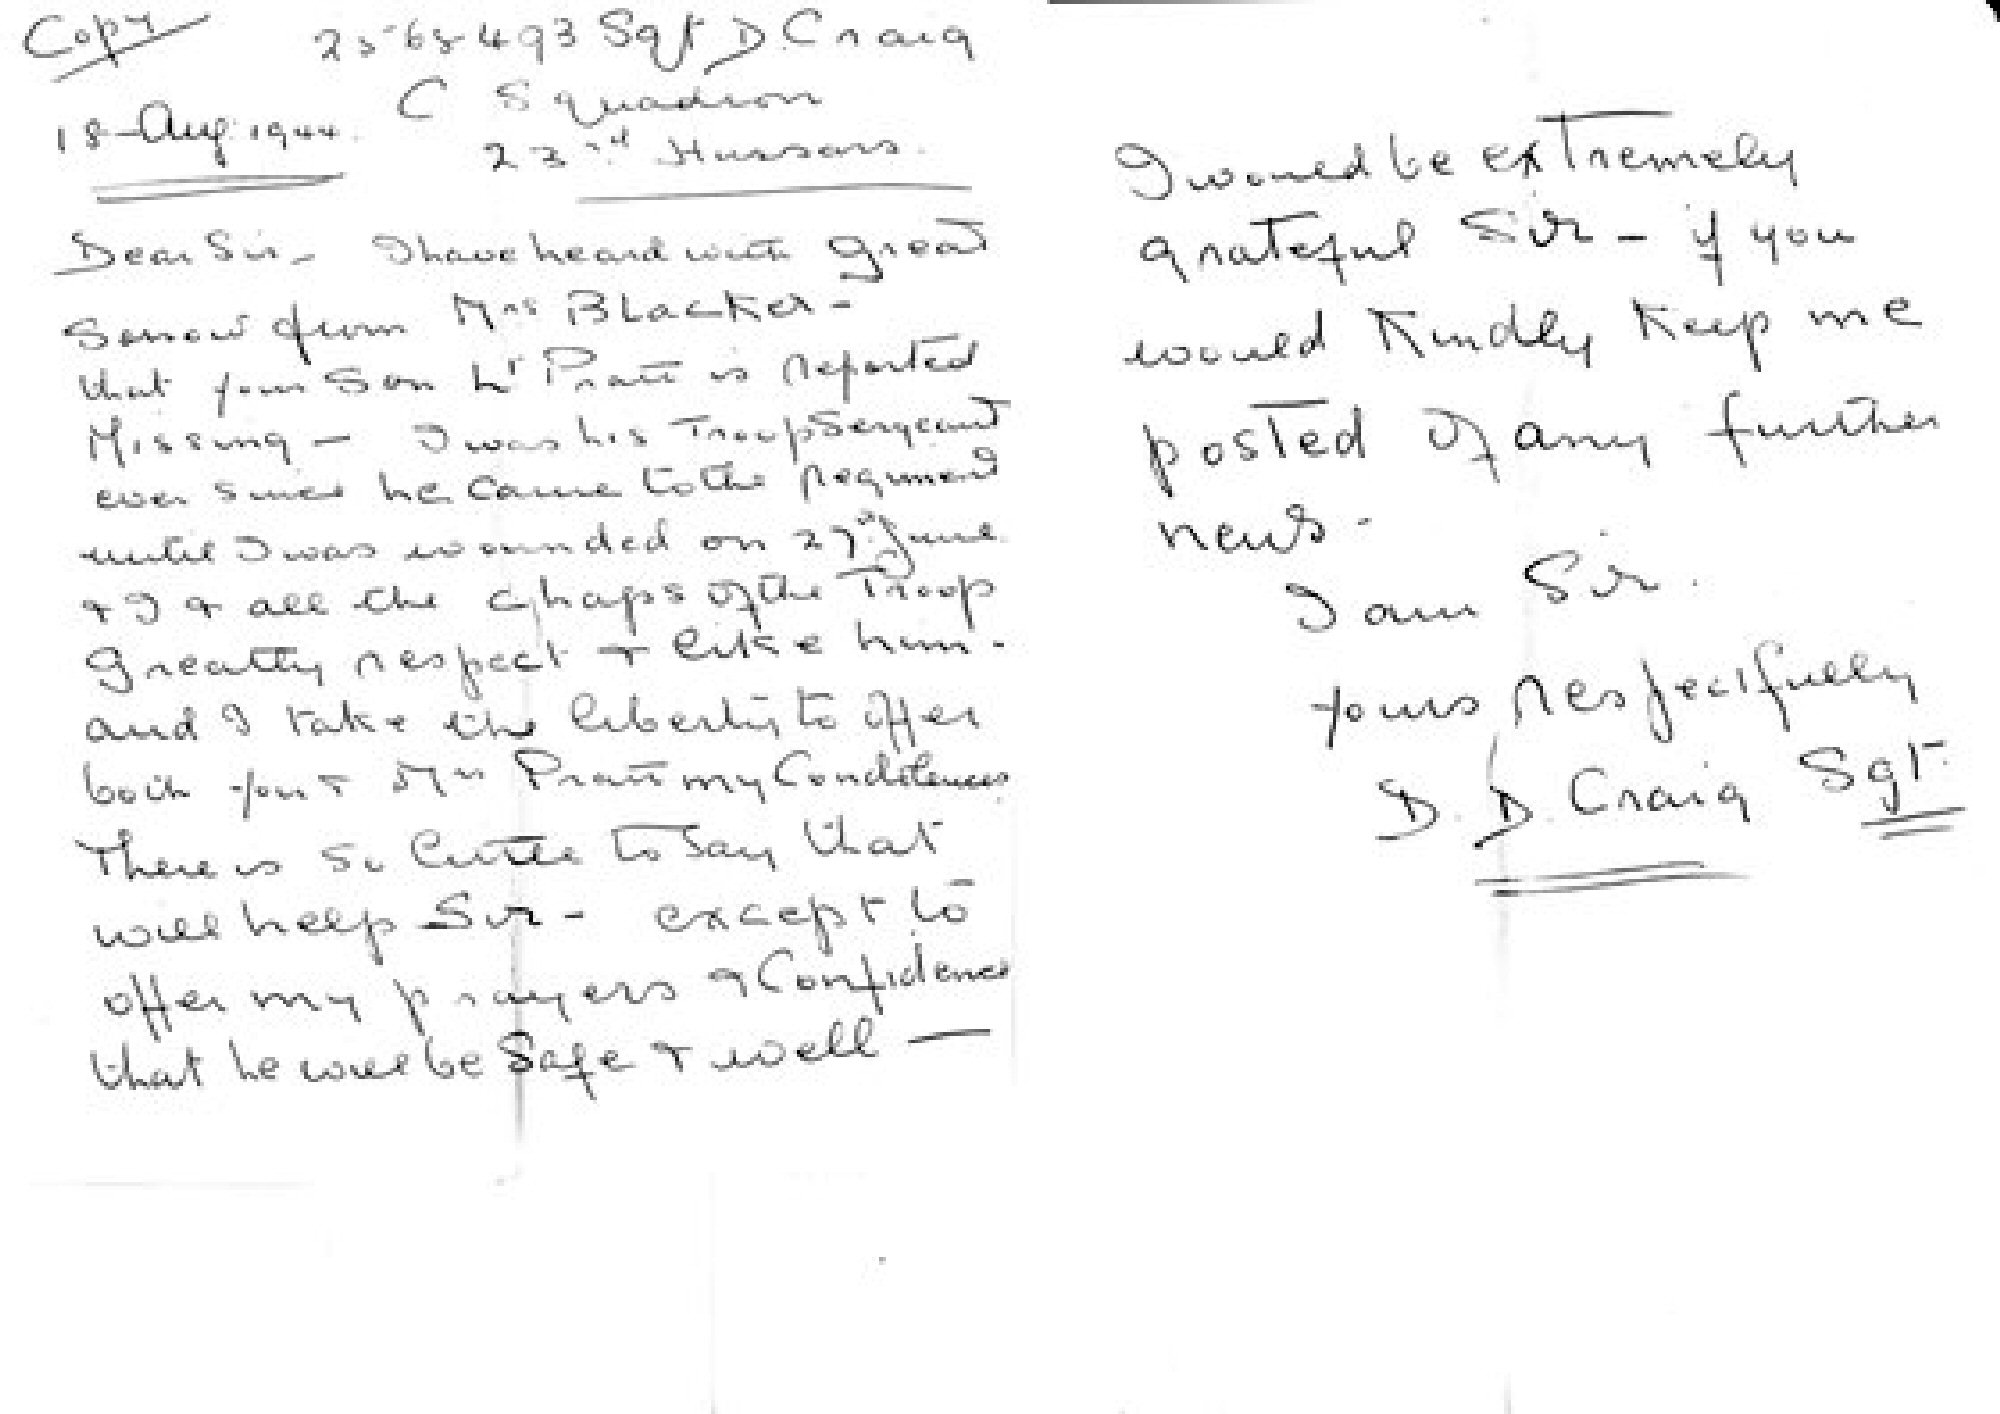 Copy
25-65-493 Sgt D. Craig
C Squadron
18-Aug. 1944.
23rd Hussars.
Dear Sir - I have heard with great
sorrow from Mrs Blacker -
that your Son Lt Pratt is reported
Missing - I was his Troop Sergeant
ever since he came to the Regiment
until I was wounded on 27th June.
& I & all the chaps of the Troop
Greatly respect & like him.
and I take the liberty to offer
both you & Mrs Pratt my Condolences
There is so little to Say that
will help Sir - except to
offer my prayers & Confidence
that he will be Safe & well —
I would be extremely
grateful Sir - if you
would Kindly Keep me
posted of any further
news -
I am Sir.
yours respectfully
D. D. Craig Sgt.